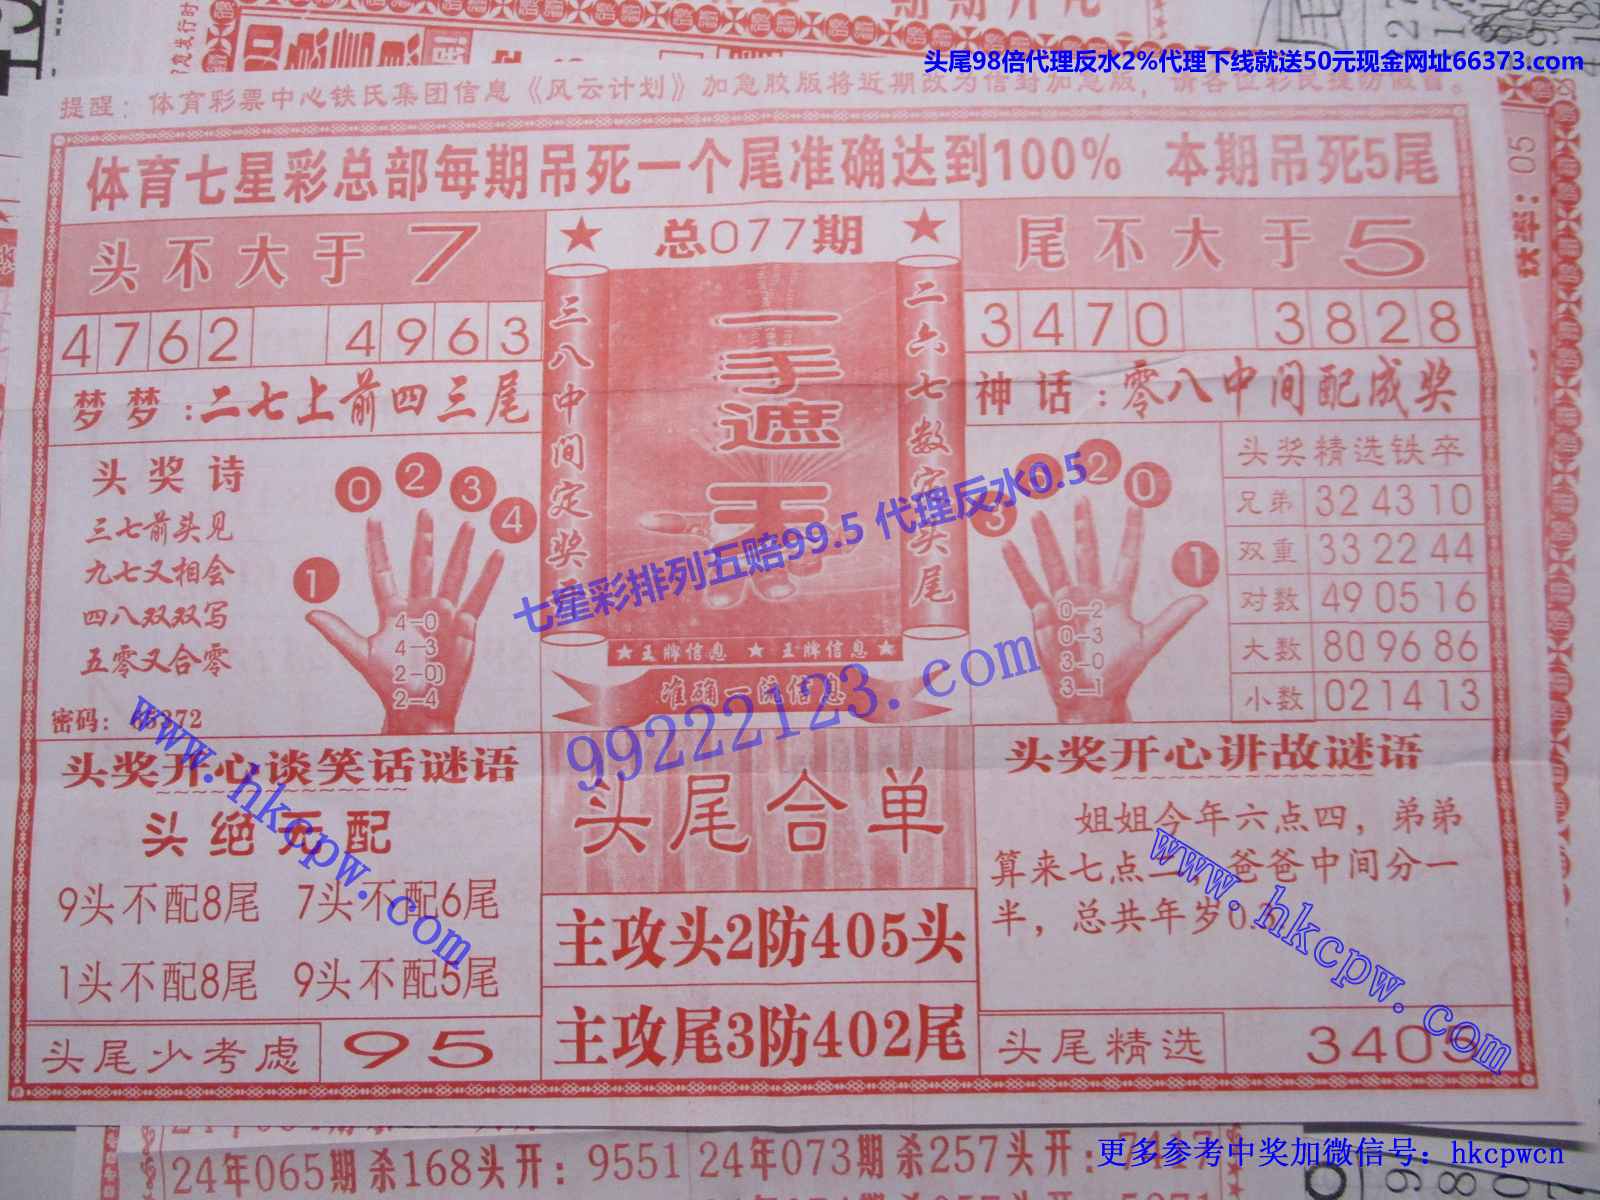 头尾98倍代理反水2%代理下线就送50元现金网址66373.com
提醒：体育彩票中心铁氏集团信息《风云计划》加急胶版将近期改为信封加急版，请各位彩民
体育七星彩总部每期吊死一个尾准确达到100% 本期吊死5尾
头不大于7
4762 4963
梦梦:二七上前四三尾
头奖诗
三七前头见
九七又相会
四八双双写
五零又合零
0 2 3 4 1
4-0
4-3
2-0)
2-4
密码:
★ 总077期 ★
三八中间定奖
一手遮天
二六七数定头尾
★王牌信息 ★ 王牌信息★
准确一流信息
尾不大于5
3470 3828
神话:零八中间配成奖
3 2 0 1
0-2
0-3
3-0
3-1
头奖精选铁卒
兄弟 32 43 10
双重 33 22 44
对数 49 05 16
大数 80 96 86
小数 02 14 13
七星彩排列五赔99.5 代理反水0.5
99222123.com
www.hkcpw.com
头奖开心谈笑话谜语
头绝无配
9头不配8尾 7头不配6尾
1头不配8尾 9头不配5尾
头尾少考虑 95
头尾合单
主攻头2防405头
主攻尾3防402尾
头奖开心讲故谜语
姐姐今年六点四，弟弟
算来七点二，爸爸中间分一
半，总共年岁0.
www.hkcpw.com
头尾精选 3405
24年065期杀168头开：9551 24年073期杀257头开：7417
更多参考中奖加微信号：hkcpwcn